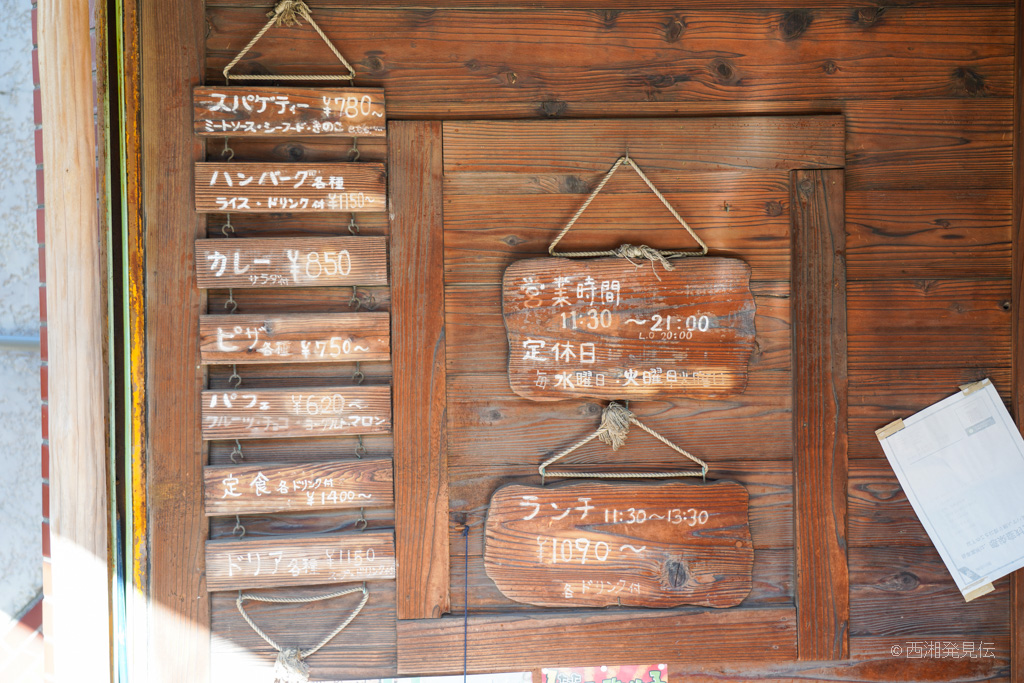 スパゲティー ¥780〜
ミートソース・シーフード・きのこ
ハンバーグ各種
ライス・ドリンク付 ¥1150〜
カレー ¥850
サラダ付
ピザ各種 ¥750〜
パフェ ¥620〜
フルーツ・チョコ・ヨーグルト・マロン
定食 各ドリンク付
¥1400〜
ドリア各種 ¥1150
営業時間
11:30 〜21:00
L.O 20:00
定休日
毎水曜日・火曜日
ランチ 11:30〜13:30
¥1090〜
各ドリンク付
©西湘発見伝